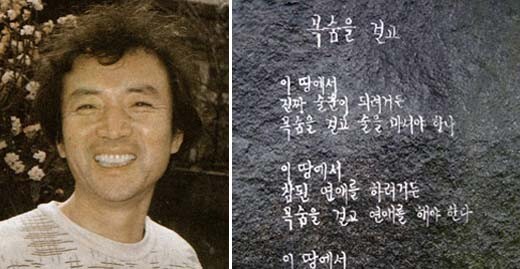 목숨을 걸고
이 땅에서
진짜 술꾼이 되려거든
목숨을 걸고 술을 마셔야 한다
이 땅에서
참된 연애를 하려거든
목숨을 걸고 연애를 해야 한다
이 땅에서